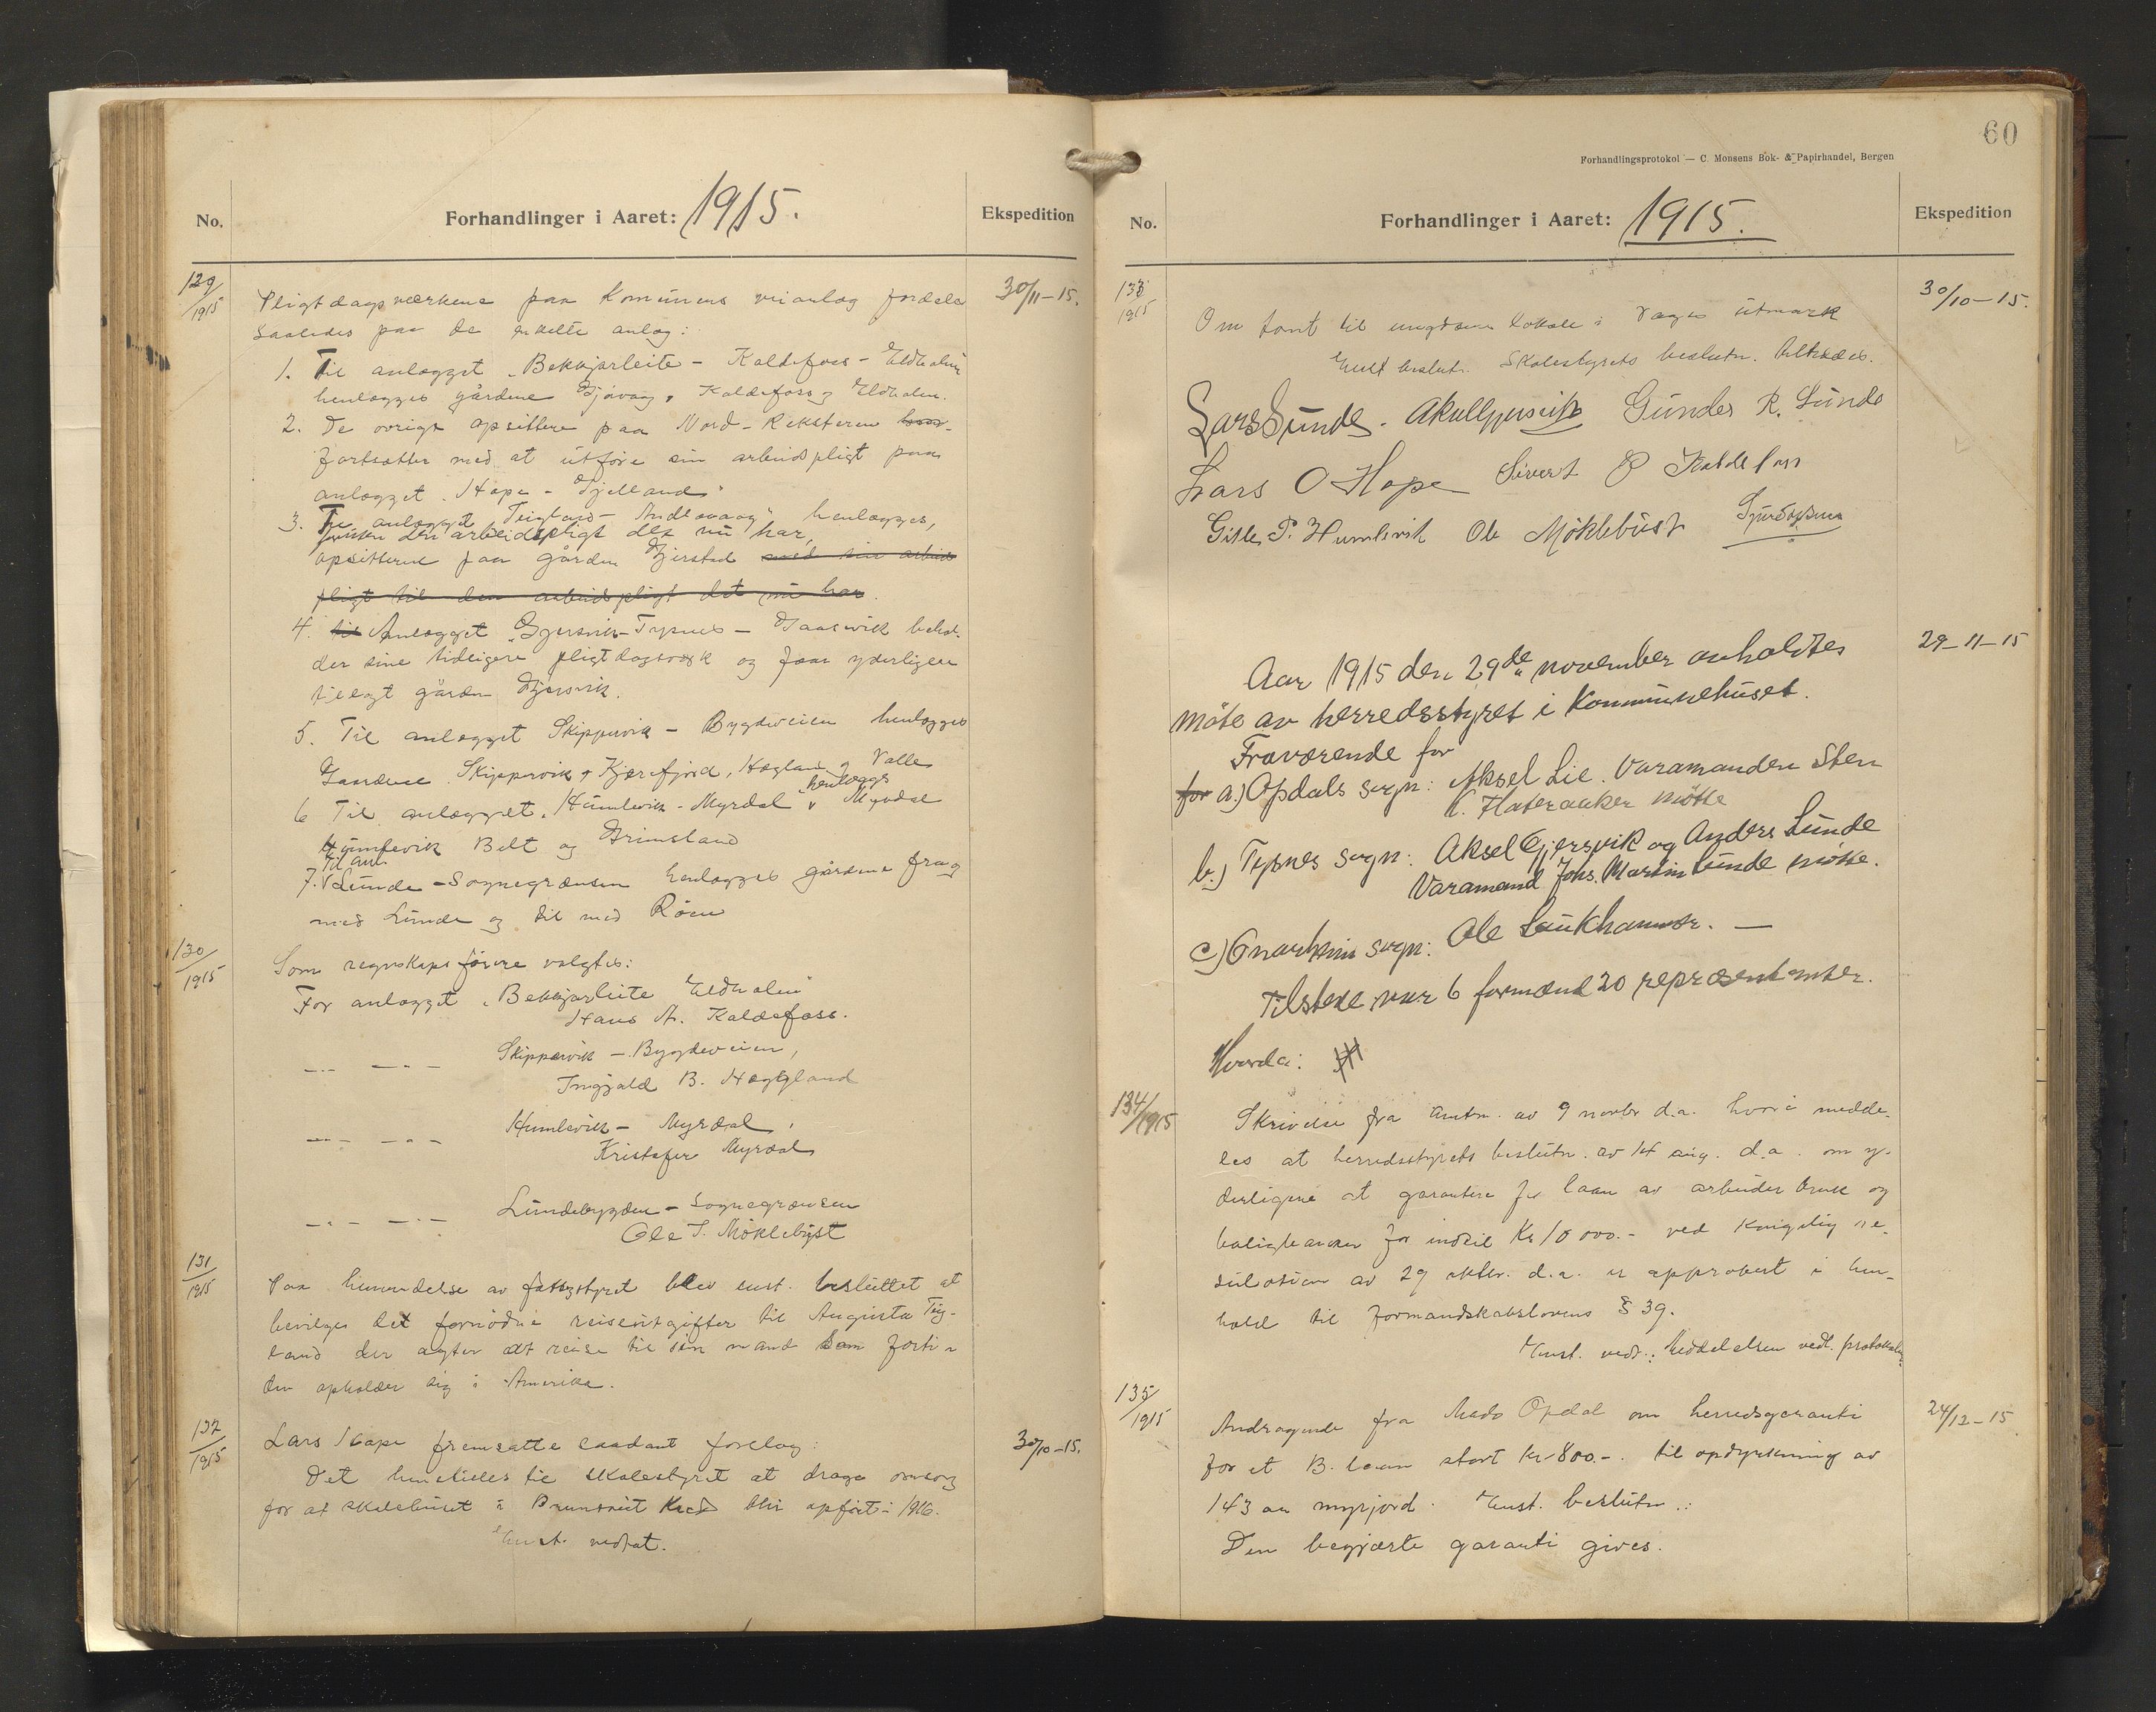 No.
Forhandlinger i Aaret: 1915.
Ekspedition
129/1915
30/11-15.
Pligtdagsværkene paa Komunens veianlæg fordeles
saaledes paa de enkelte anlæg:
1. Til anlægget "Bekkjarleite - Kaldefoss - Eldholm"
henlægges gårdene Gjøvaag, Kaldefoss og Eldholm.
2. De øvrige opsittere paa Nord-Reksteren
fortsætter med at utføre sin arbeidspligt paa
anlægget "Hope - Gjelland"
3. Til anlægget Teigland - Andlevaag" henlægges,
foruten den arbeidspligt det nu har,
opsitterne paa gården Gjerstad med sin arbeids
pligt til den arbeidspligt det nu har.
4. til Anlægget "Gjersvik - Tysnes - Gaasvik behol-
der sine tidligere pligtdagsværk og faar yderligere
tillagt gården Gjersvik.
5. Til anlægget Skippervik - Bygdeveien henlægges
Gaardene Skippervik, Kjærefjord, Hægland og Valle
6 Til anlægget "Humlevik - Myrdal" henlægges Myrdal
Humlevik Belt og Grimsland
7. Til anl. Lunde - Sognegrænsen henlægges gårdene fra og
med Lunde og til med Röen
130/1915
Som regnskapsförere valgtes:
For anlægget "Bekkjarleite Eldholm"
Hans A. Kaldefoss.
Skippervik - Bygdeveien,
Ingjald B. Hægland
Humlevik - Myrdal,
Kristofer Myrdal
Lundebygden - Sognegrænsen
Ole T. Möklebust
131/1915
Paa henvendelse av fattigstyret blev enst. besluttet at
bevilges det fornödne reiseutgifter til Augusta Teig-
land der agter at reise til sin mand som forti-
den opholder sig i Amerika.
132/1915
30/10-15.
Lars Hope fremsatte saadant forslag:
Det henstilles til skolestyret at drage omsorg
for at skolehuset i Brunsvit Kreds blir opfört i 1916.
Enst. vedtat.
60
Forhandlingsprotokol — C. Monsens Bok- & Papirhandel, Bergen
No.
Forhandlinger i Aaret: 1915.
Ekspedition
133/1915
30/10-15.
Om tomt til ungdoms lokale i Vaages utmark
Enst beslut. Skolestyrets beslutn. tiltrædes.
Lars Lunde. Gunder R. Lunde
Lars O Hope Sivert P Kaldefoss
Gisle P. Humlevik Ole Möklebust
29-11-15
Aar 1915 den 29de november avholdtes
möte av herredsstyret i Kommunehuset.
Fraværende for
for a.) Opdals sogn: Aksel Lie. Varamanden Sten
K. Hateraaker mötte
b.) Tysnes sogn: Aksel Gjersvik og Anders Lunde
Varamand Johs. Martin Lunde mötte.
c) Onarheim sogn: Ole Laukhammer. —
Tilstede var 6 formænd 20 repræsentanter.
Hvorda:
134/1915
Skrivelse fra Amtm. av 9 novbr d.a. hvori medde-
les at herredsstyrets beslutn. av 14 aug. d.a. om y-
derligere at garantere for laan av arbeider bruk og
boligbanken for indtil Kr 10 000.- ved Kongelig re-
solution av 29 oktbr. d.a. er approbert i hen-
hold til formandskabslovens § 39.
Enst. vedt.: Meddelelsen vedl. protokolen
135/1915
24/12-15
Andragende fra Mads Opdal om herredsgaranti
for et B. laan stort Kr 800.-. til opdyrkning av
143 ar myrjord. Enst. beslutn.:
Den begjærte garanti gives.